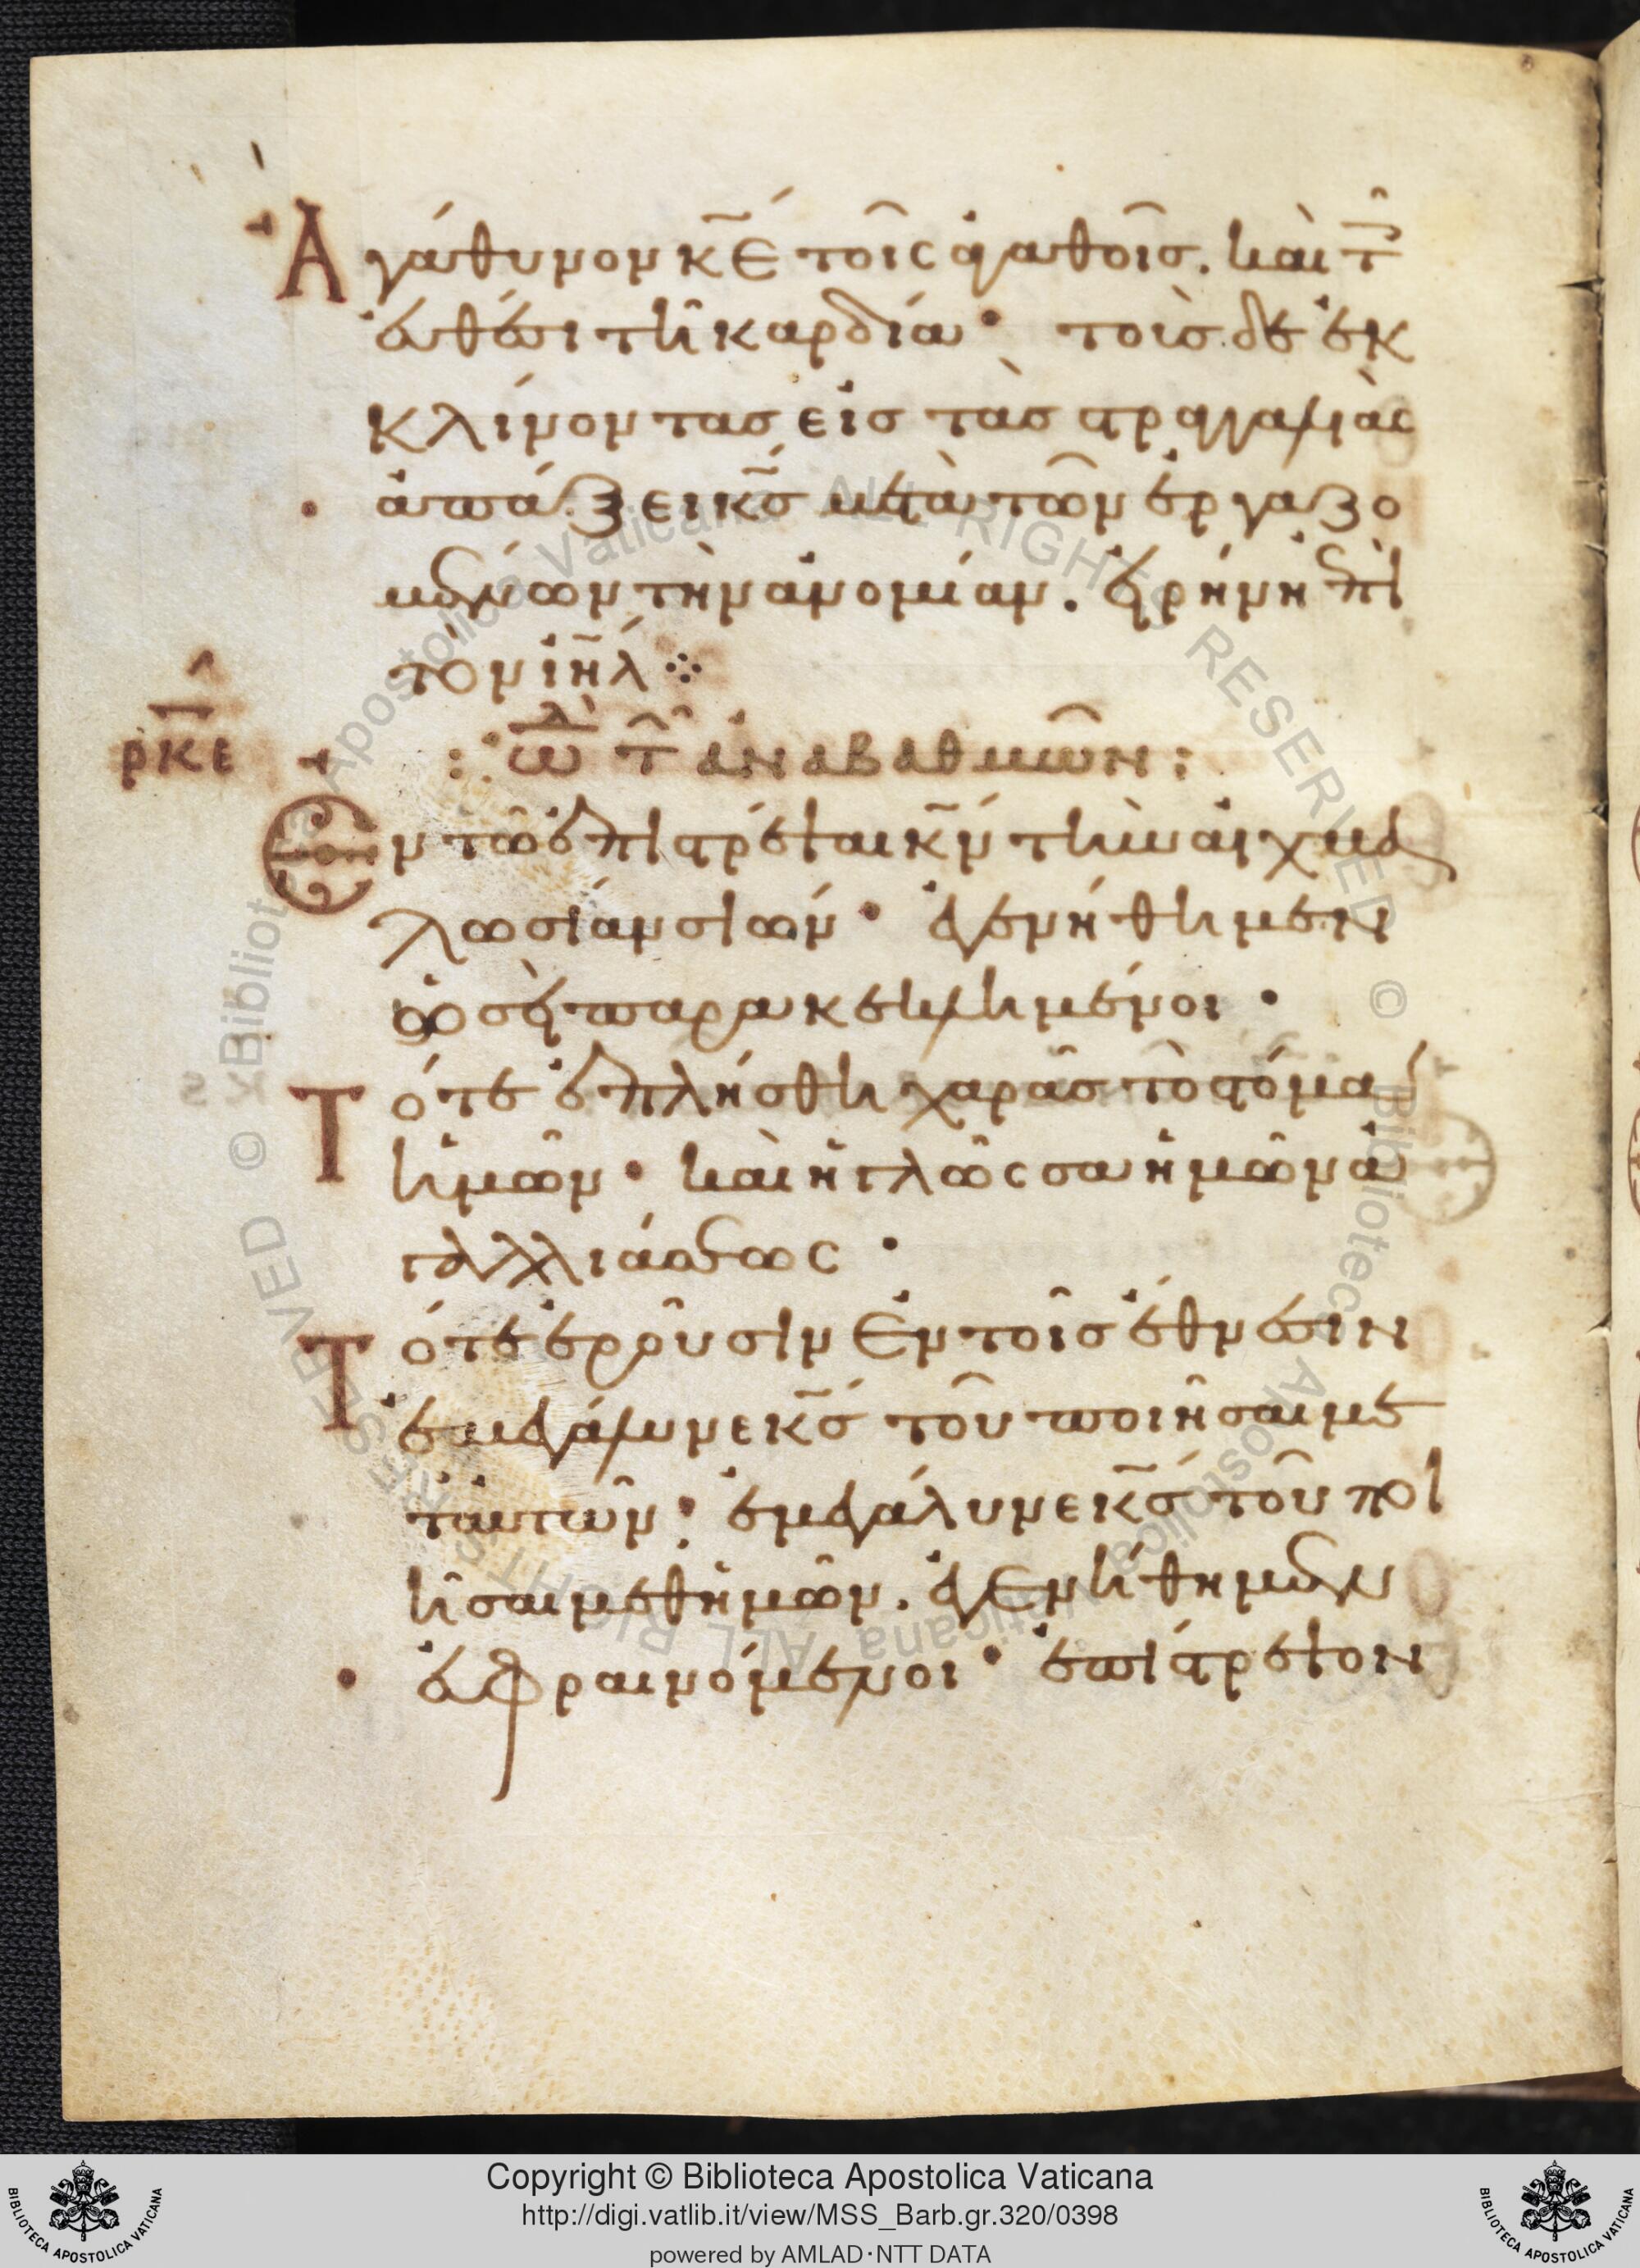 Ἀγάθυνον κ̅ε̅ τοῖς ἀγαθοῖς. καὶ τ̅
εὐθέσι τῆ καρδία· τοὺσ δὲ ἐκ
κλίνοντασ εἰσ τὰσ στραγγαλιὰς
ἀπάξει κ̅σ̅ μετὰ τῶν ἐργαζο
μένων τὴν ἀνομίαν. εἰρήνη ἐπὶ
τὸν ι̅η̅λ̅ ⁘
ρκε
: ὠ̅δ τ̅ ἀναβαθμῶν :
Ἐν τῶ ἐπιστρέψαι κ̅ν̅ τὴν αἰχμα
λωσίαν σιών· ἐγενήθημεν
ὡσεὶ παρακεκλημένοι·
Τότε ἐπλήσθη χαρᾶσ τὸ στόμα
ἡμῶν· καὶ ἡ γλῶσσα ἡμῶν ἀ
γαλλιάσεως·
Τότε ἐροῦσιν ἐν τοῖσ ἔθνεσιν
ἐμεγάλυνε κ̅σ̅ τοῦ ποιῆσαι με
τ' αὐτῶν: ἐμεγάλυνε κ̅σ̅ τοῦ ποι
ῆσαι μεθ' ἡμῶν. ἐγενήθημεν
εὐφραινόμενοι· ἐπίστρεψον
Copyright © Biblioteca Apostolica Vaticana
http://digi.vatlib.it/view/MSS_Barb.gr.320/0398
powered by AMLAD·NTT DATA
BIBLIOTECA APOSTOLICA VATICANA
BIBLIOTECA APOSTOLICA VATICANA